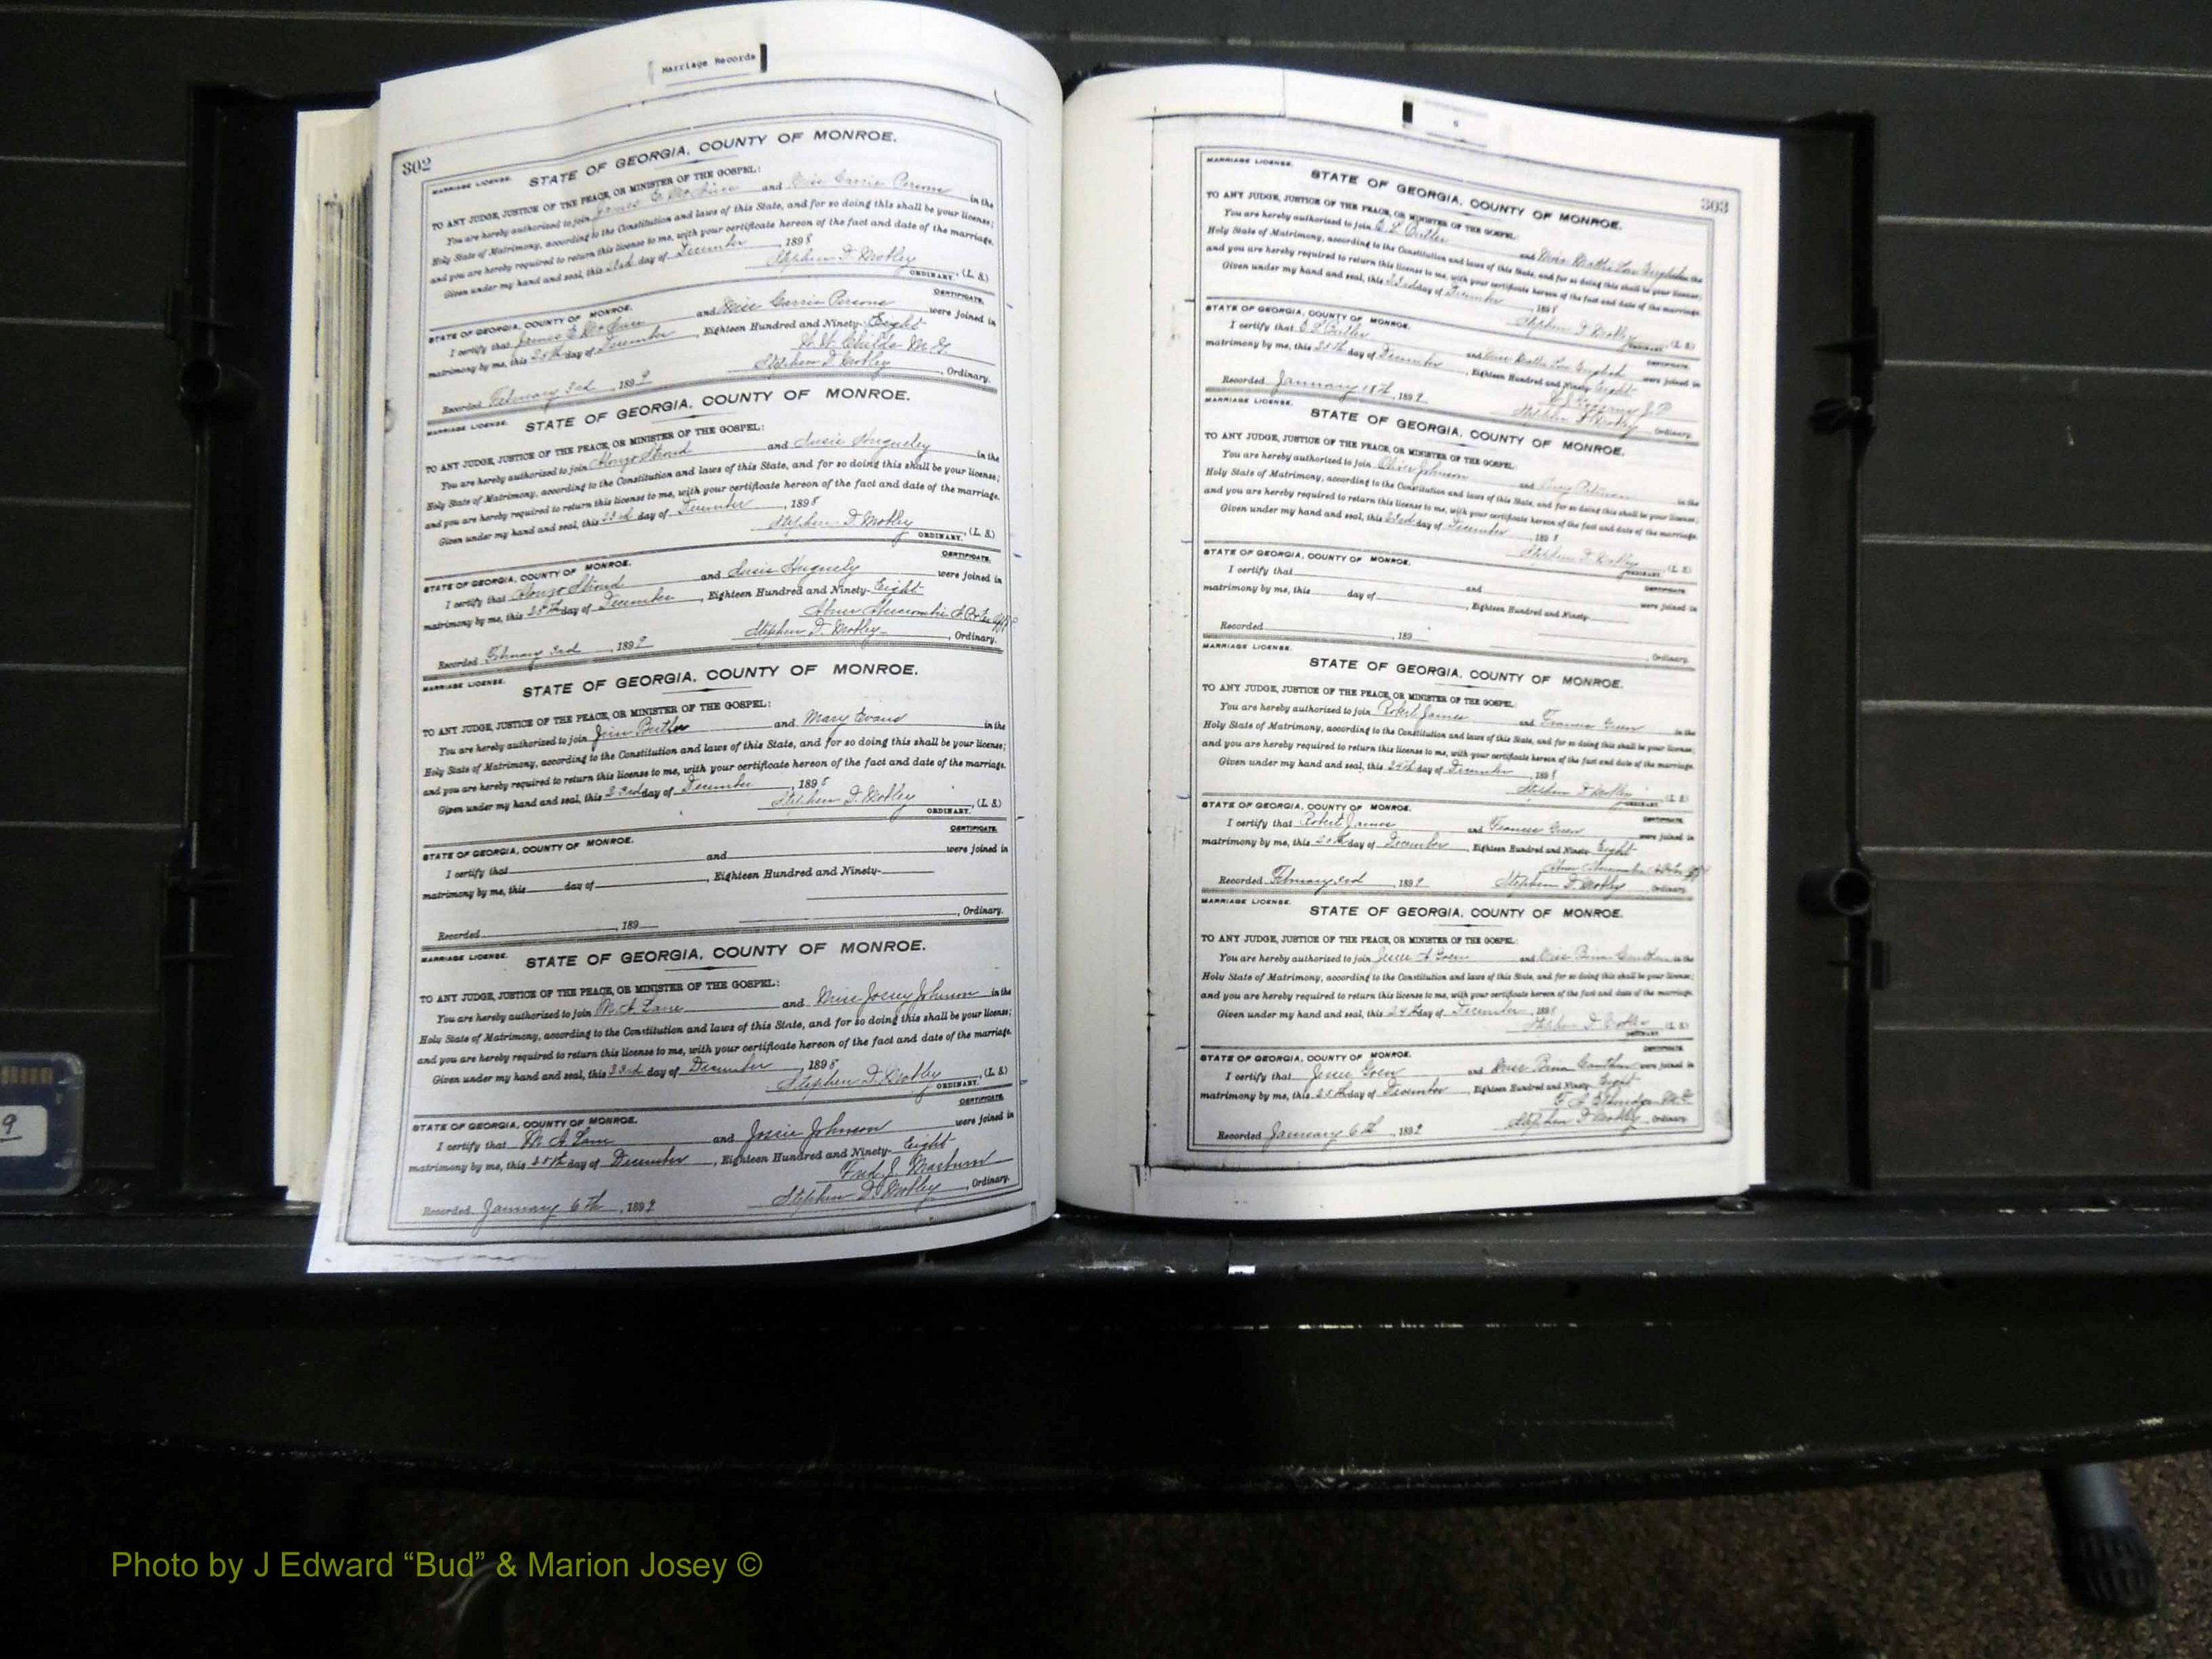 Marriage Records
302
MARRIAGE LICENSE. STATE OF GEORGIA, COUNTY OF MONROE.
TO ANY JUDGE, JUSTICE OF THE PEACE, OR MINISTER OF THE GOSPEL:
You are hereby authorized to join James E and Miss Carrie Persons in the
Holy State of Matrimony, according to the Constitution and laws of this State, and for so doing this shall be your license;
and you are hereby required to return this license to me, with your certificate hereon of the fact and date of the marriage.
Given under my hand and seal, this day of December, 1898
Stephen D. Mobley ORDINARY, (L. S.)
CERTIFICATE.
STATE OF GEORGIA, COUNTY OF MONROE.
I certify that James E and Miss Carrie Persons were joined in
matrimony by me, this 25th day of December, Eighteen Hundred and Ninety-Eight
Childs M. G.
Recorded February 3rd, 1899 Stephen D. Mobley, Ordinary.
MARRIAGE LICENSE. STATE OF GEORGIA, COUNTY OF MONROE.
TO ANY JUDGE, JUSTICE OF THE PEACE, OR MINISTER OF THE GOSPEL:
You are hereby authorized to join Alonzo Stroud and Susie Hugueley in the
Holy State of Matrimony, according to the Constitution and laws of this State, and for so doing this shall be your license;
and you are hereby required to return this license to me, with your certificate hereon of the fact and date of the marriage.
Given under my hand and seal, this 23rd day of December, 1898
Stephen D. Mobley ORDINARY, (L. S.)
CERTIFICATE.
STATE OF GEORGIA, COUNTY OF MONROE.
I certify that Alonzo Stroud and Susie Huguely were joined in
matrimony by me, this 25th day of December, Eighteen Hundred and Ninety-Eight
Abner Abercrombie
Recorded February 3rd, 1899 Stephen D. Mobley, Ordinary.
MARRIAGE LICENSE. STATE OF GEORGIA, COUNTY OF MONROE.
TO ANY JUDGE, JUSTICE OF THE PEACE, OR MINISTER OF THE GOSPEL:
You are hereby authorized to join Jim Butler and Mary Evans in the
Holy State of Matrimony, according to the Constitution and laws of this State, and for so doing this shall be your license;
and you are hereby required to return this license to me, with your certificate hereon of the fact and date of the marriage.
Given under my hand and seal, this 23rd day of December, 1898
Stephen D. Mobley ORDINARY, (L. S.)
CERTIFICATE.
STATE OF GEORGIA, COUNTY OF MONROE.
I certify that and were joined in
matrimony by me, this day of , Eighteen Hundred and Ninety-
Recorded , 189 , Ordinary.
MARRIAGE LICENSE. STATE OF GEORGIA, COUNTY OF MONROE.
TO ANY JUDGE, JUSTICE OF THE PEACE, OR MINISTER OF THE GOSPEL:
You are hereby authorized to join M. A. Lane and Miss Josey Johnson in the
Holy State of Matrimony, according to the Constitution and laws of this State, and for so doing this shall be your license;
and you are hereby required to return this license to me, with your certificate hereon of the fact and date of the marriage.
Given under my hand and seal, this 23rd day of December, 1898
Stephen D. Mobley ORDINARY, (L. S.)
CERTIFICATE.
STATE OF GEORGIA, COUNTY OF MONROE.
I certify that M A Lane and Jossie Johnson were joined in
matrimony by me, this 25th day of December, Eighteen Hundred and Ninety-Eight
Fred J. Mashburn
Recorded January 6th, 1899 Stephen D. Mobley, Ordinary.
303
MARRIAGE LICENSE.
STATE OF GEORGIA, COUNTY OF MONROE.
TO ANY JUDGE, JUSTICE OF THE PEACE, OR MINISTER OF THE GOSPEL:
You are hereby authorized to join C L Butler and Miss Lou English in the
Holy State of Matrimony, according to the Constitution and laws of this State, and for so doing this shall be your license;
and you are hereby required to return this license to me, with your certificate hereon of the fact and date of the marriage.
Given under my hand and seal, this 23rd day of December, 1898
Stephen D Mobley ORDINARY, (L. S.)
CERTIFICATE.
STATE OF GEORGIA, COUNTY OF MONROE.
I certify that C L Butler and Miss Lou English were joined in
matrimony by me, this 25th day of December, Eighteen Hundred and Ninety-Eight
J. P.
Recorded January 18th, 1899 Stephen D Mobley, Ordinary.
MARRIAGE LICENSE.
STATE OF GEORGIA, COUNTY OF MONROE.
TO ANY JUDGE, JUSTICE OF THE PEACE, OR MINISTER OF THE GOSPEL:
You are hereby authorized to join Johnson and in the
Holy State of Matrimony, according to the Constitution and laws of this State, and for so doing this shall be your license;
and you are hereby required to return this license to me, with your certificate hereon of the fact and date of the marriage.
Given under my hand and seal, this 23rd day of December, 1898
Stephen D Mobley ORDINARY, (L. S.)
CERTIFICATE.
STATE OF GEORGIA, COUNTY OF MONROE.
I certify that and were joined in
matrimony by me, this day of , Eighteen Hundred and Ninety-
Recorded , 189 , Ordinary.
MARRIAGE LICENSE.
STATE OF GEORGIA, COUNTY OF MONROE.
TO ANY JUDGE, JUSTICE OF THE PEACE, OR MINISTER OF THE GOSPEL:
You are hereby authorized to join Robert James and Frances Green in the
Holy State of Matrimony, according to the Constitution and laws of this State, and for so doing this shall be your license;
and you are hereby required to return this license to me, with your certificate hereon of the fact and date of the marriage.
Given under my hand and seal, this 24th day of December, 1898
Stephen D Mobley ORDINARY, (L. S.)
CERTIFICATE.
STATE OF GEORGIA, COUNTY OF MONROE.
I certify that Robert James and Frances Green were joined in
matrimony by me, this day of December, Eighteen Hundred and Ninety-Eight
Abner Abercrombie
Recorded February 3rd, 1899 Stephen D. Mobley, Ordinary.
MARRIAGE LICENSE.
STATE OF GEORGIA, COUNTY OF MONROE.
TO ANY JUDGE, JUSTICE OF THE PEACE, OR MINISTER OF THE GOSPEL:
You are hereby authorized to join Jesse A Goen and Miss in the
Holy State of Matrimony, according to the Constitution and laws of this State, and for so doing this shall be your license;
and you are hereby required to return this license to me, with your certificate hereon of the fact and date of the marriage.
Given under my hand and seal, this 24th day of December, 1898
Stephen D. Mobley ORDINARY, (L. S.)
CERTIFICATE.
STATE OF GEORGIA, COUNTY OF MONROE.
I certify that Jesse Goen and Miss were joined in
matrimony by me, this 25th day of December, Eighteen Hundred and Ninety-Eight
Recorded January 6th, 1899 Stephen D Mobley, Ordinary.
9
Photo by J Edward “Bud” & Marion Josey ©